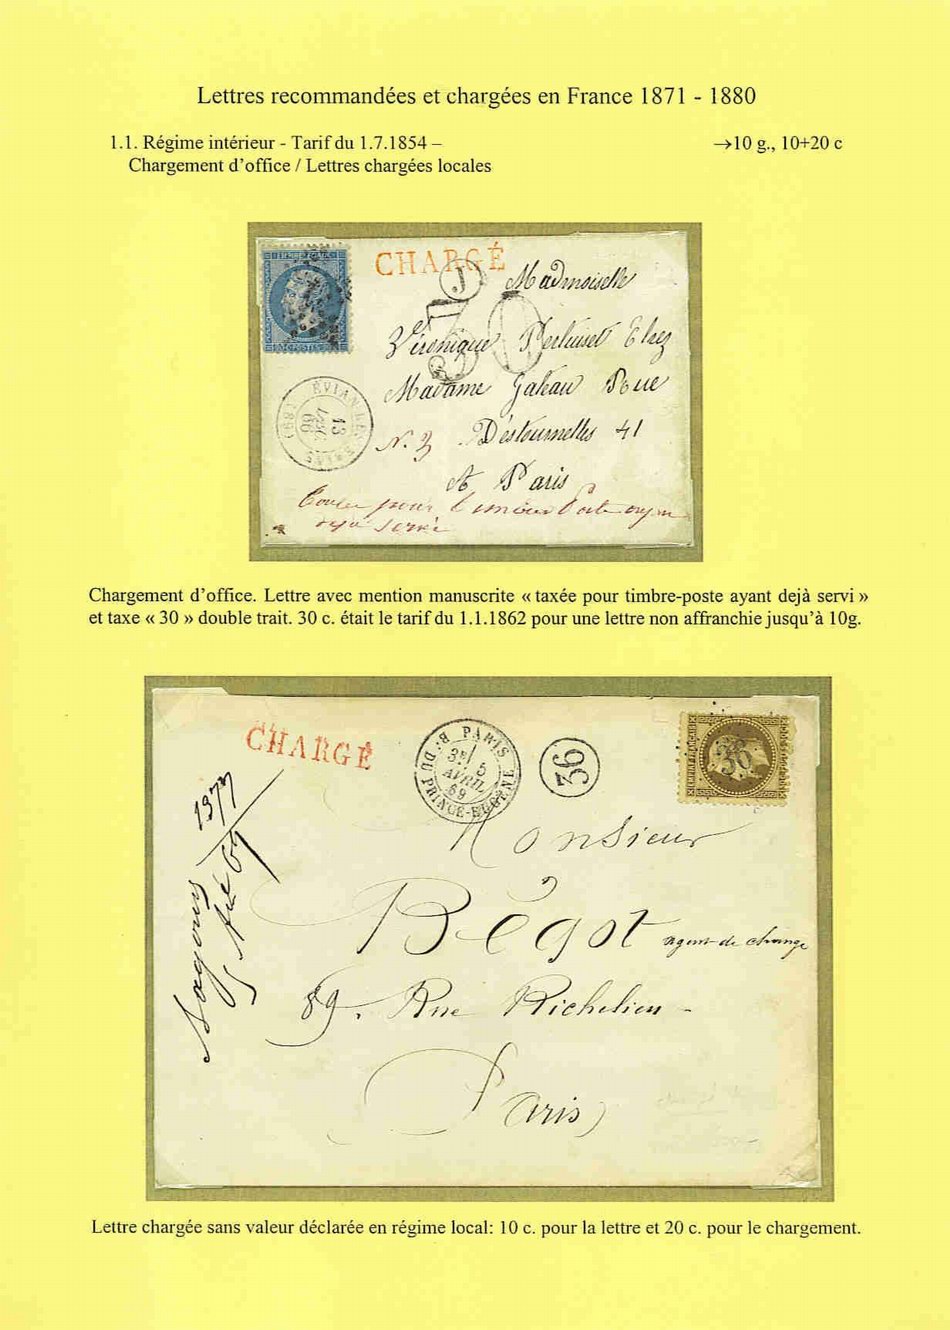 Lettres recommandées et chargées en France 1871 - 1880
1.1. Régime intérieur - Tarif du 1.7.1854 – →10 g., 10+20 c
Chargement d’office / Lettres chargées locales
CHARGÉ
J
30
Madmoiselle
Véronique Pertuiset Chez
Madame Galeau Rue
N. 3 Destournelles 41
A Paris
ÉVIAN-LES-BAINS (89)
13
66
EMPIRE FRANC
POSTES
déja servi
Chargement d’office. Lettre avec mention manuscrite « taxée pour timbre-poste ayant dejà servi »
et taxe « 30 » double trait. 30 c. était le tarif du 1.1.1862 pour une lettre non affranchie jusqu’à 10g.
CHARGÉ
PARIS
5
AVRIL
69
B: DU PRINCE-EUGÈNE
36
36
EMPIRE FRANÇAIS
1373
Monsieur
Bégot agent de change
89. Rue Richelieu -
Paris
Lettre chargée sans valeur déclarée en régime local: 10 c. pour la lettre et 20 c. pour le chargement.